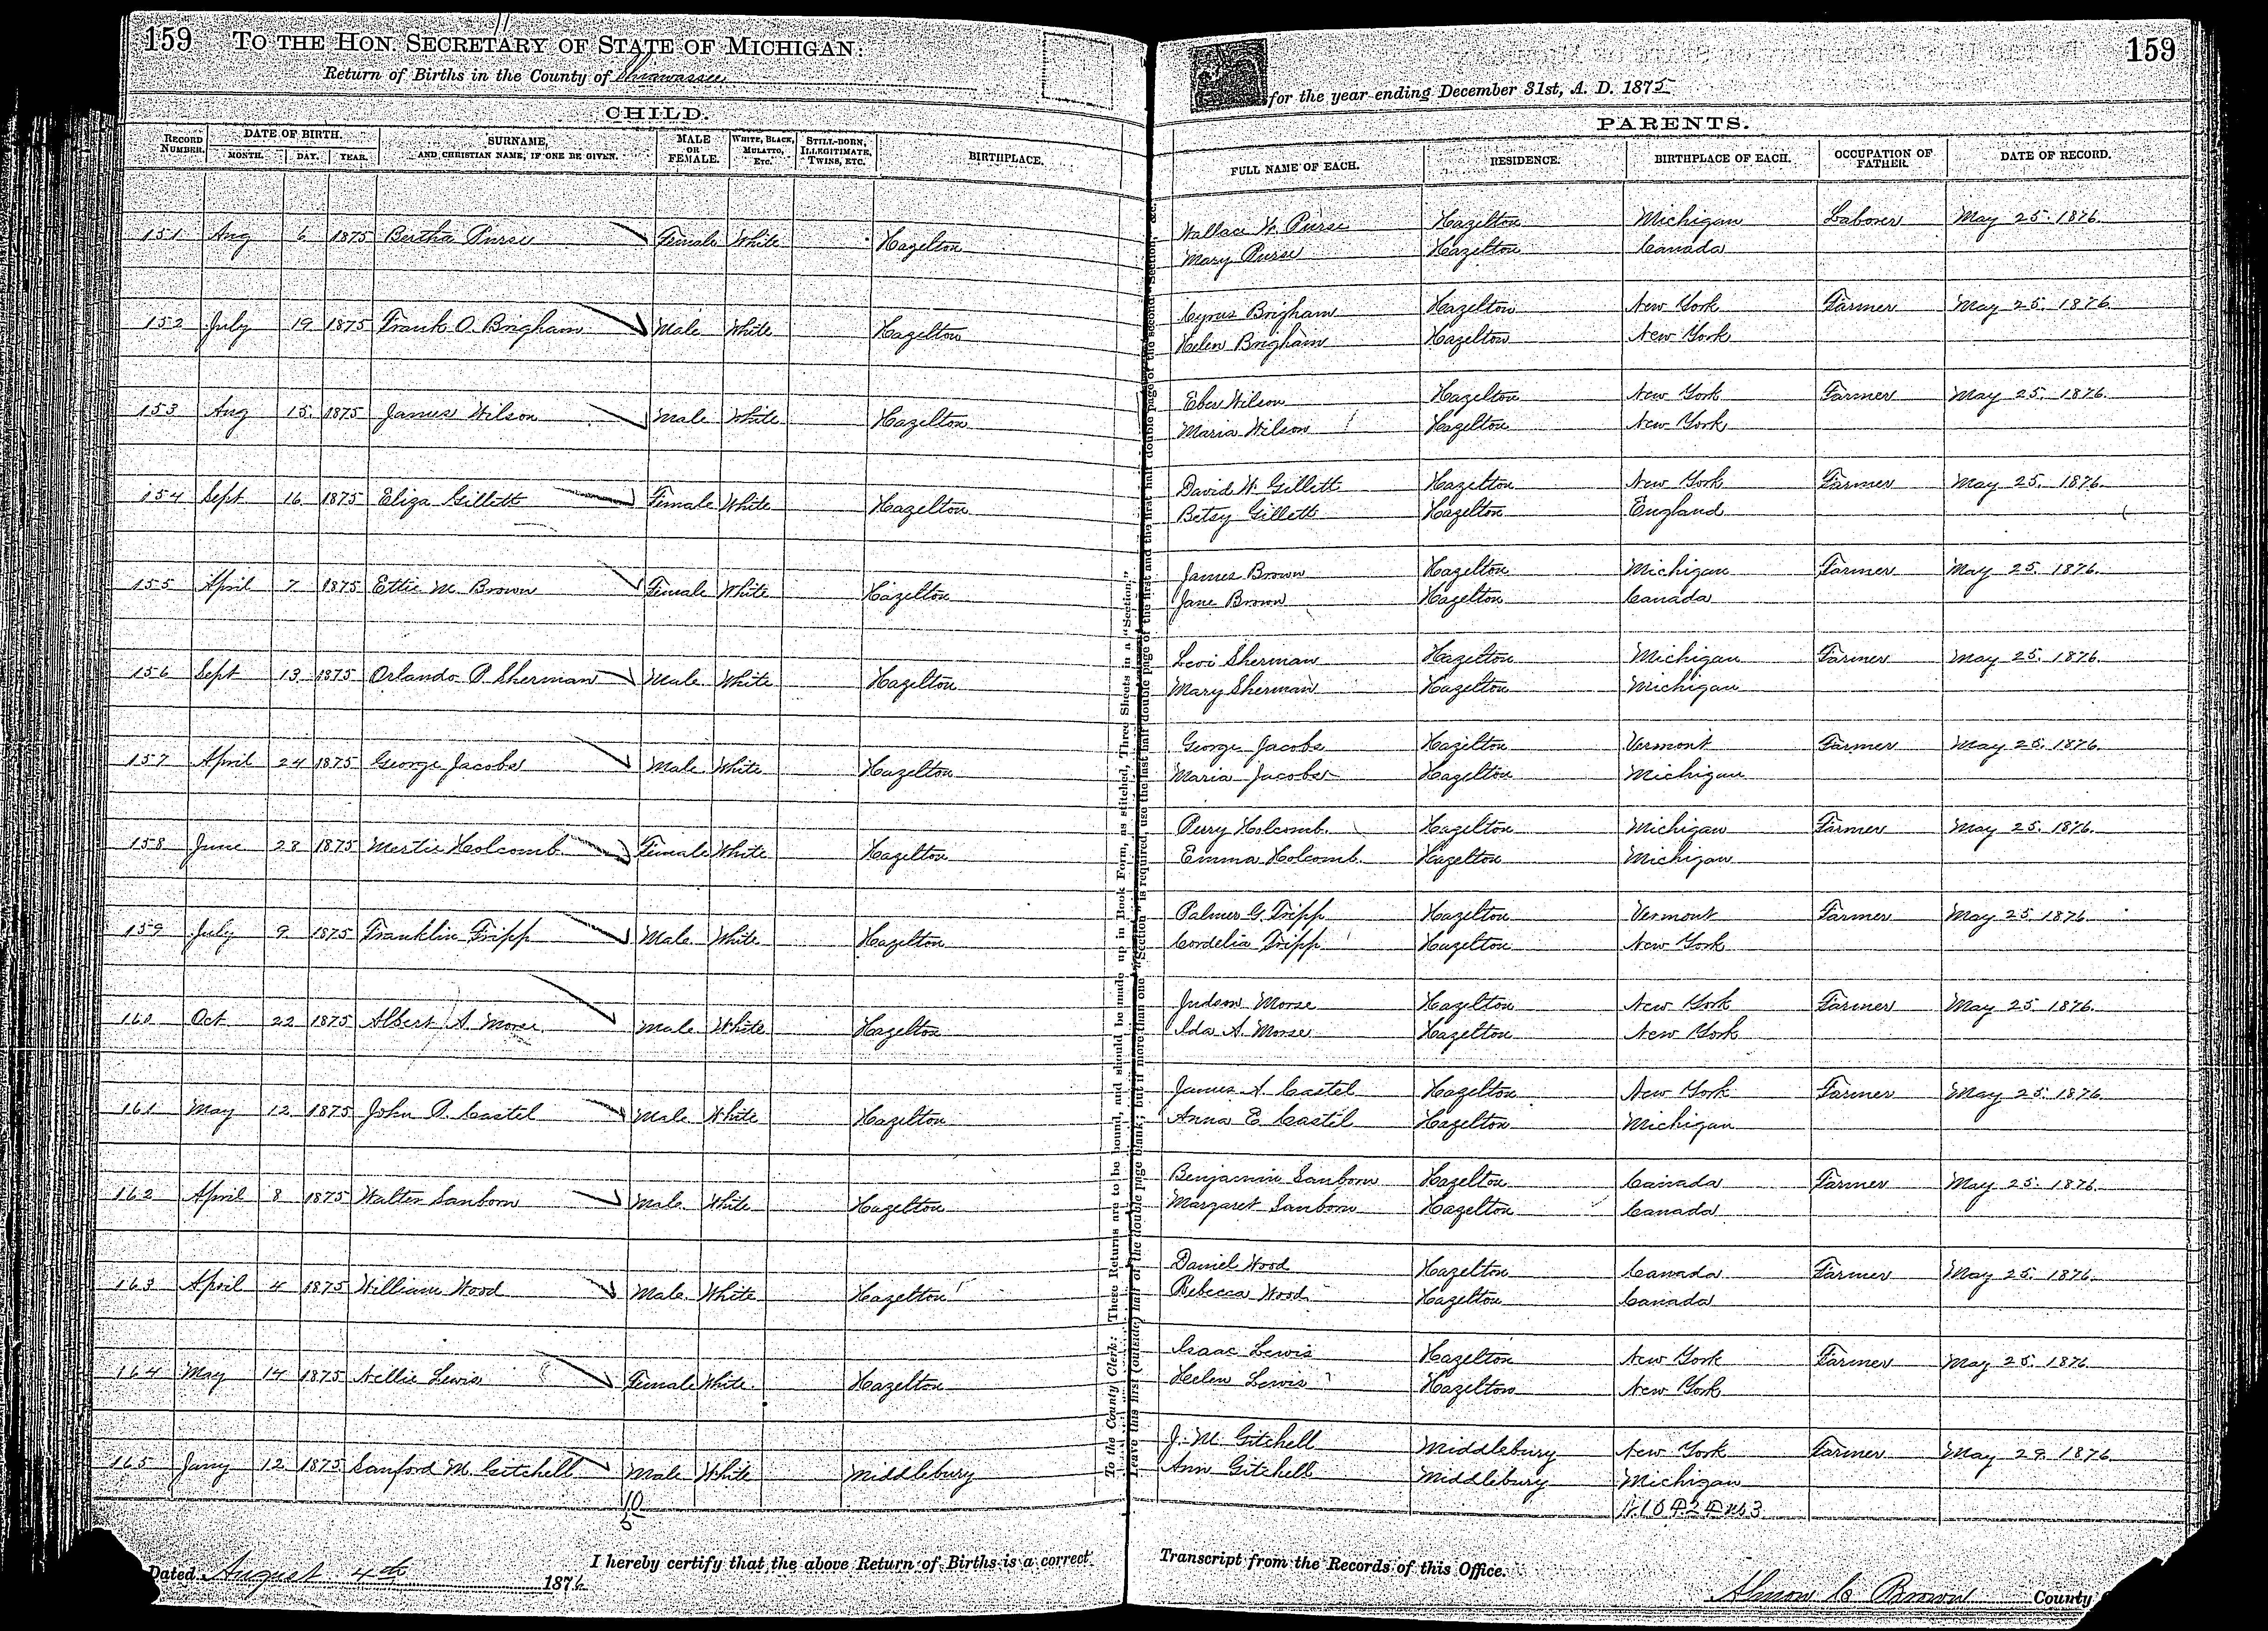 159 TO THE HON. SECRETARY OF STATE OF MICHIGAN: 159
Return of Births in the County of Shiawassee for the year ending December 31st, A. D. 1875
CHILD. PARENTS.
RECORD NUMBER. DATE OF BIRTH. MONTH. DAY. YEAR. SURNAME, AND CHRISTIAN NAME, IF ONE BE GIVEN. MALE OR FEMALE. WHITE, BLACK, MULATTO, ETC. STILL-BORN, ILLEGITIMATE, TWINS, ETC. BIRTHPLACE. FULL NAME OF EACH. RESIDENCE. BIRTHPLACE OF EACH. OCCUPATION OF FATHER. DATE OF RECORD.
151 Aug 6 1875 Bertha Purse Female White Hazelton Wallace W. Purse Hazelton Michigan Laborer May 25. 1876.
Mary Purse Hazelton Canada
152 July 19 1875 Frank O. Brigham Male White Hazelton Cyrus Brigham Hazelton New York Farmer May 25. 1876
Helen Brigham Hazelton New York
153 Aug 15. 1875 James Wilson Male White Hazelton Eber Wilson Hazelton New York Farmer May 25. 1876.
Maria Wilson Hazelton New York
154 Sept 16 1875 Eliza Gillett Female White Hazelton David W. Gillett Hazelton New York Farmer May 25. 1876.
Betsy Gillett Hazelton England
155 April 7 1875 Ettie M. Brown Female White Hazelton James Brown Hazelton Michigan Farmer May 25. 1876.
Jane Brown Hazelton Canada
156 Sept 13 1875 Orlando P. Sherman Male White Hazelton Levi Sherman Hazelton Michigan Farmer May 25. 1876.
Mary Sherman Hazelton Michigan
157 April 24 1875 George Jacobs Male White Hazelton George Jacobs Hazelton Vermont Farmer May 25. 1876.
Maria Jacobs Hazelton Michigan
158 June 28 1875 Mertie Holcomb Female White Hazelton Perry Holcomb. Hazelton Michigan Farmer May 25. 1876.
Emma Holcomb. Hazelton Michigan
159 July 9 1875 Franklin Tripp Male White Hazelton Palmer G. Tripp Hazelton Vermont Farmer May 25 1876
Cordelia Tripp Hazelton New York
160 Oct 22 1875 Albert A. Morse Male White Hazelton Judson Morse Hazelton New York Farmer May 25 1876.
Ida A. Morse Hazelton New York
161 May 12 1875 John P. Castel Male White Hazelton James A. Castel Hazelton New York Farmer May 25. 1876
Anna E. Castel Hazelton Michigan
162 April 8 1875 Walter Sanborn Male White Hazelton Benjamin Sanborn Hazelton Canada Farmer May 25. 1876
Margaret Sanborn Hazelton Canada
163 April 4 1875 William Wood Male White Hazelton Daniel Wood Hazelton Canada Farmer May 25. 1876
Rebecca Wood Hazelton Canada
164 May 14 1875 Nellie Lewis Female White Hazelton Isaac Lewis Hazelton New York Farmer May 25. 1876
Helen Lewis Hazelton New York
165 Jany 12 1875 Sanford M. Gitchell Male White Middlebury J. M. Gitchell Middlebury New York Farmer May 29. 1876
Ann Gitchell Middlebury Michigan
10
5
To the County Clerk: These Returns are to be bound, and should be made up in Book Form, as stitched, Three Sheets in a "Section."
Leave this first (outside) half of the double page blank; but if more than one "Section" is required, use the last half double page of the first and the first half double page of the second "Section," &c.
Dated August 4th 1876 I hereby certify that the above Return of Births is a correct Transcript from the Records of this Office.
Almon C. Brown County